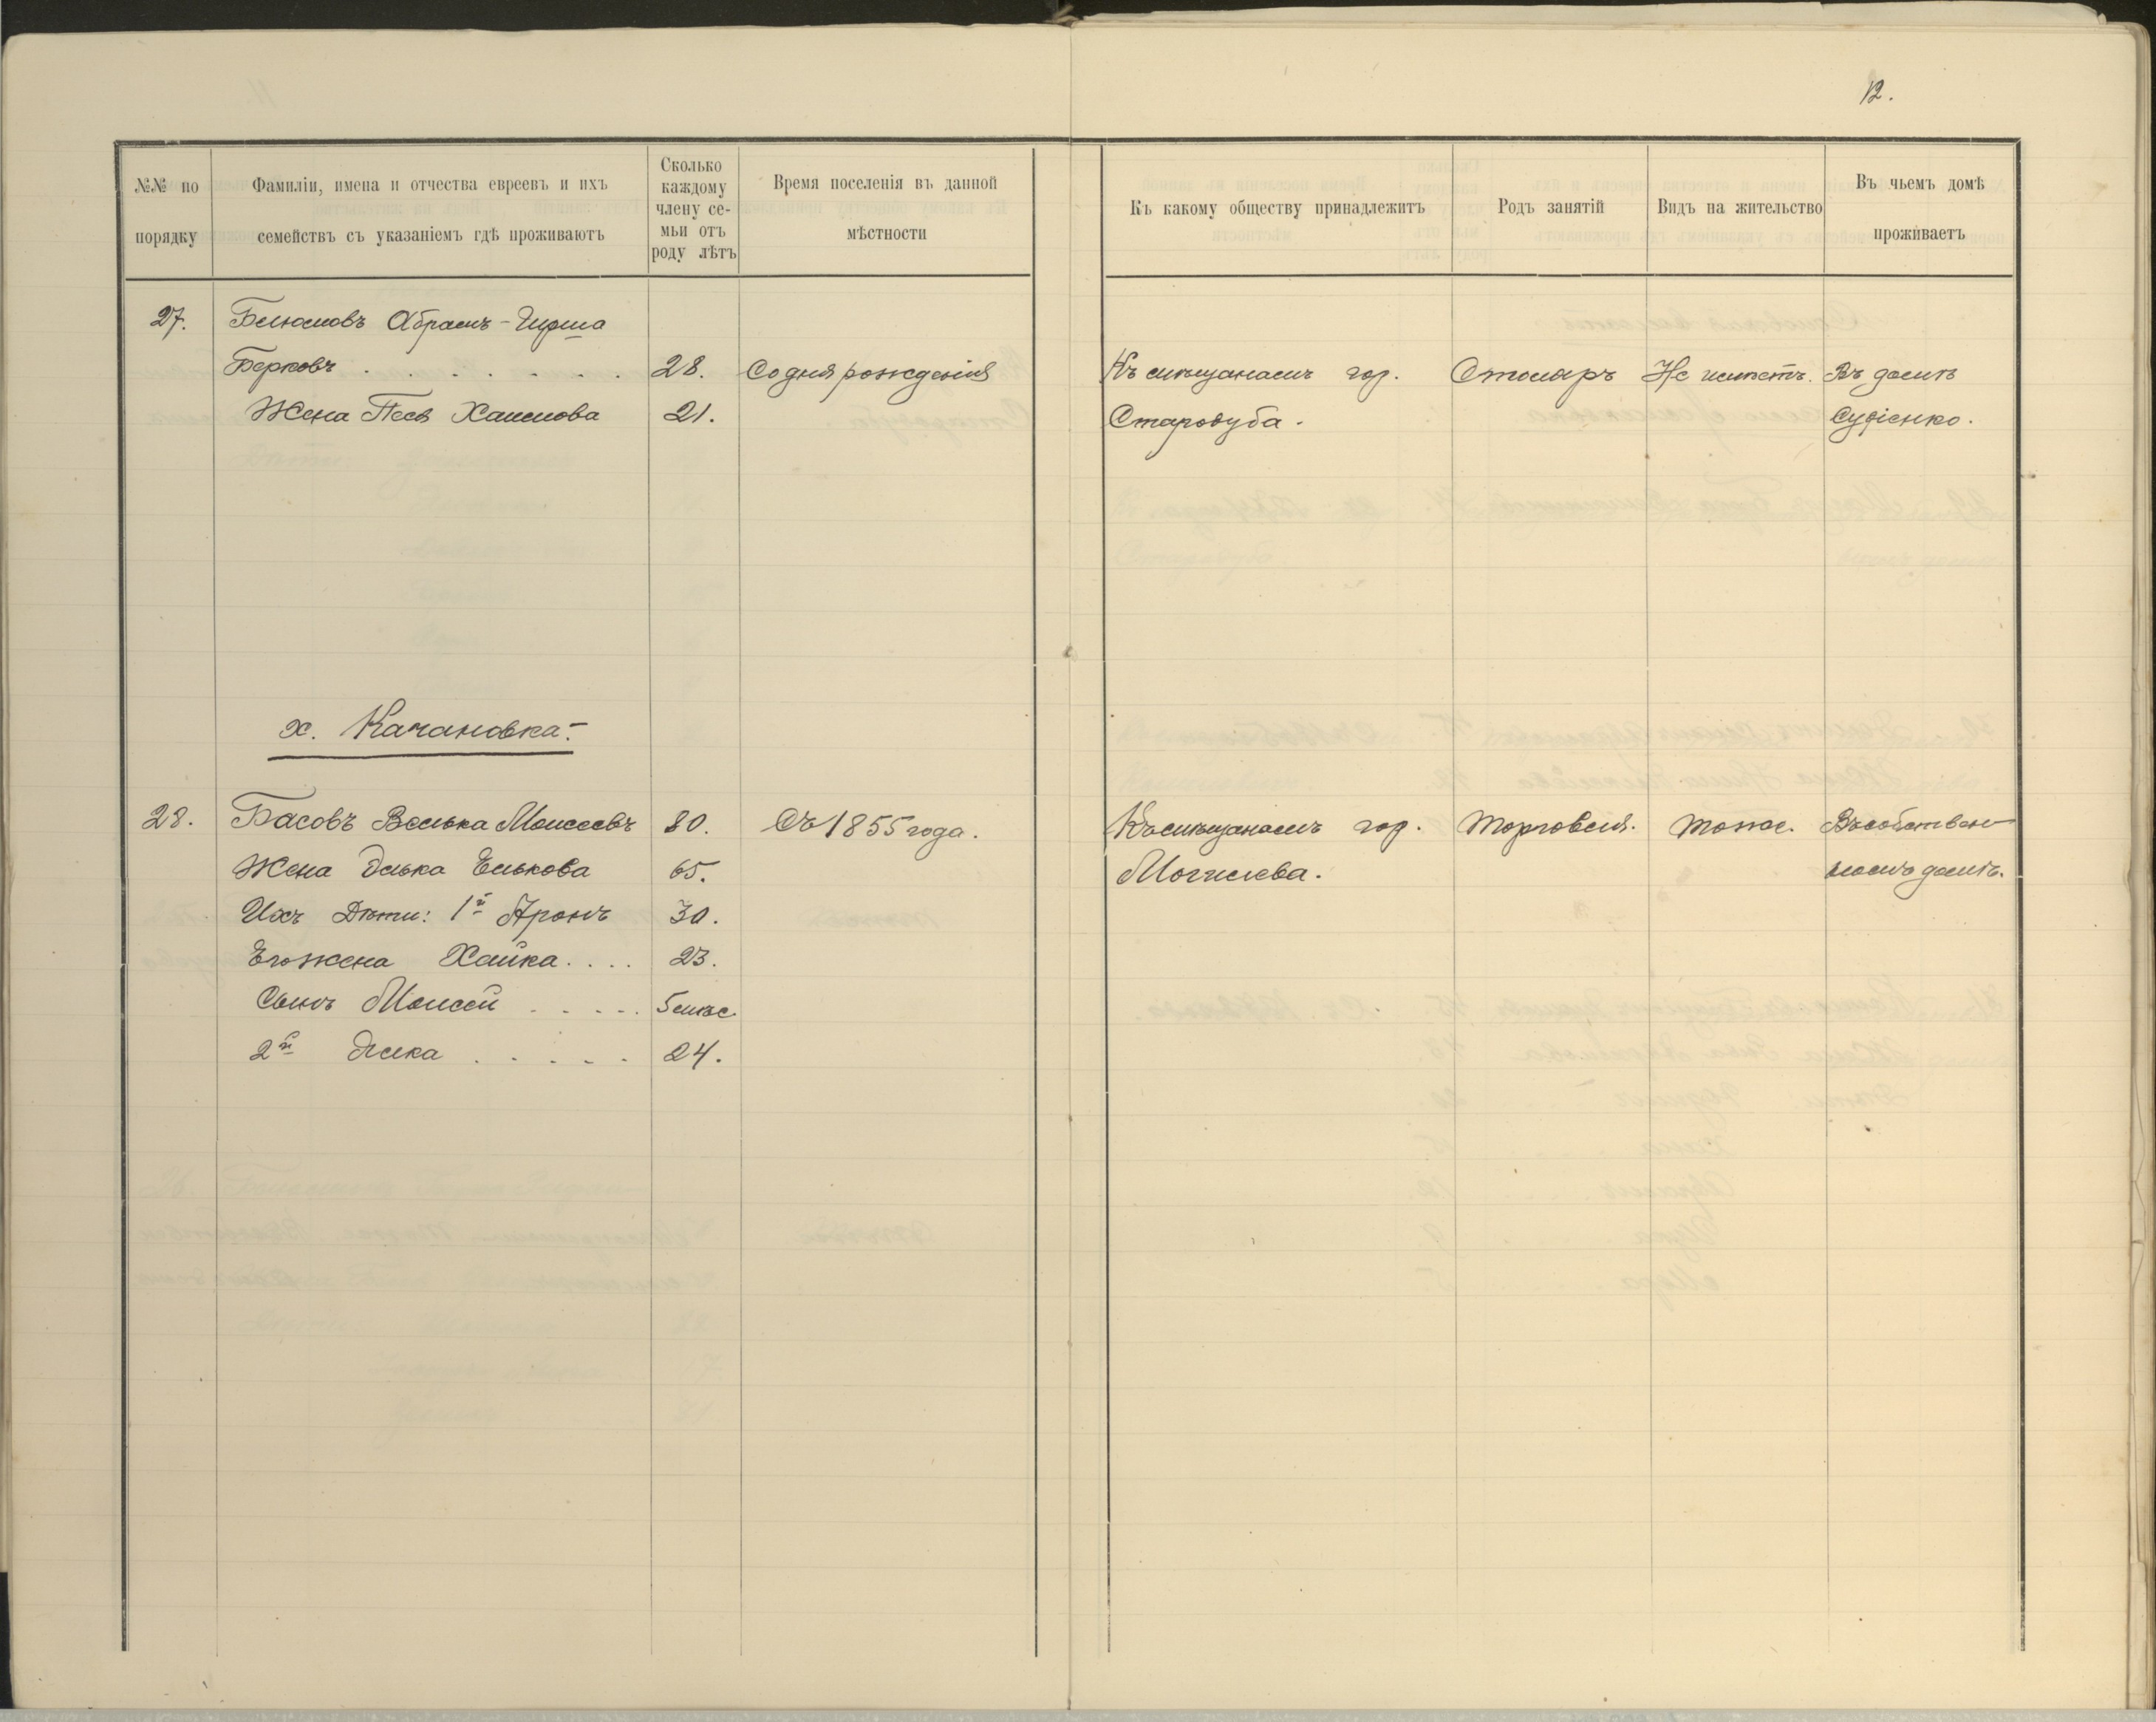 12.
№№ по порядку
Фамиліи, имена и отчества евреевъ и ихъ семействъ съ указаніемъ гдѣ проживаютъ
Сколько каждому члену семьи отъ роду лѣтъ
Время поселенія въ данной мѣстности
Къ какому обществу принадлежитъ
Родъ занятій
Видъ на жительство
Въ чьемъ домѣ проживаетъ
27. Абрамъ-Гирша
Берковъ . . . . . . . 28. Со дня рожденія Къ мѣщанамъ гор. Столяръ Не имѣетъ. Въ домѣ
Жена Песя Хаимова 21. Стародуба. Судіенко.
х. Качановка.
28. Басовъ Велька Моисеевъ 80. Съ 1855 года. Къ мѣщанамъ гор. Торговля. Тоже. Въ собствен-
Жена Элька Елькова 65. Могилева. номъ домѣ.
Ихъ Дѣти: 1й Аронъ 30.
Его жена Хайка . . . . 23.
Сынъ Моисей . . . . . 5 мѣс.
2й . . . . . 24.